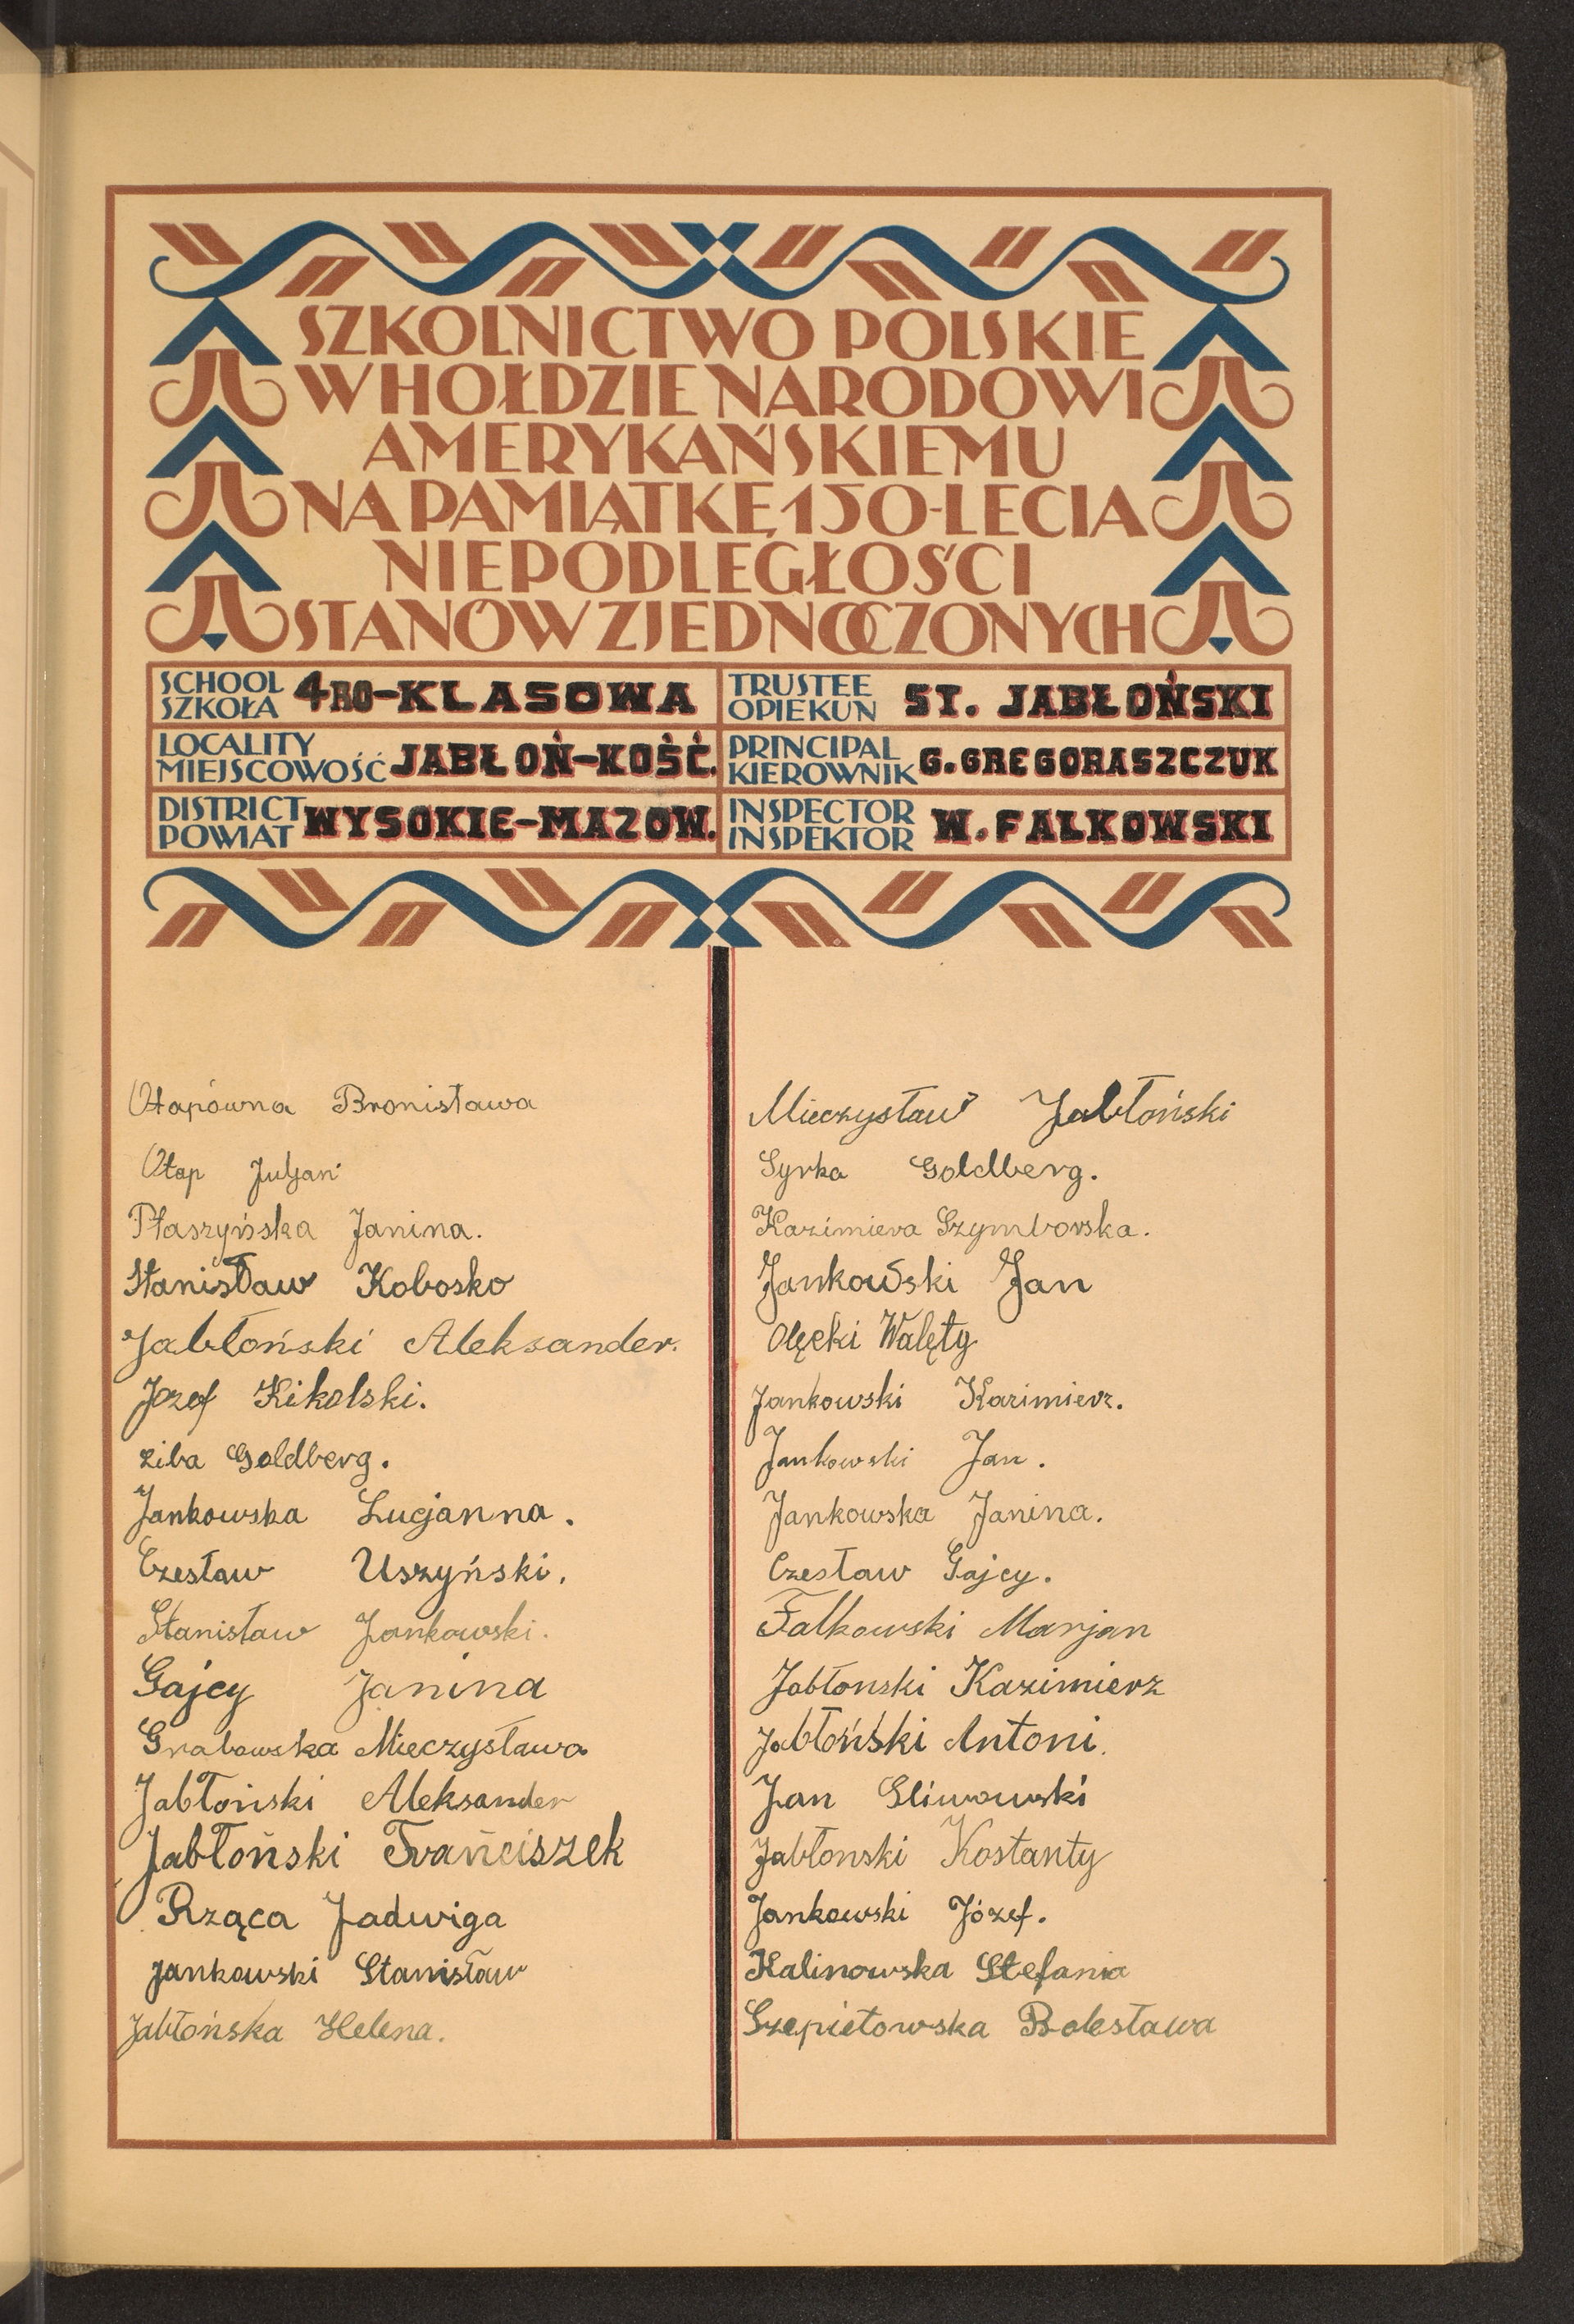 SZKOLNICTWO POLSKIE
W HOŁDZIE NARODOWI
AMERYKAŃSKIEMU
NA PAMIĄTKĘ 150-LECIA
NIEPODLEGŁOŚCI
STANÓW ZJEDNOCZONYCH
SCHOOL
SZKOŁA 4RO-KLASOWA
TRUSTEE
OPIEKUN ST. JABŁOŃSKI
LOCALITY
MIEJSCOWOŚĆ JABŁOŃ-KOŚĆ.
PRINCIPAL
KIEROWNIK G. GREGORASZCZUK
DISTRICT
POWIAT WYSOKIE-MAZOW.
INSPECTOR
INSPEKTOR W. FALKOWSKI
Otapówna Bronisława
Otap Juljan
Płaszyńska Janina.
Stanisław Kobosko
Jabłoński Aleksander.
Jozef Kikolski.
Ziba Goldberg.
Jankowska Lucjanna.
Czesław Uszyński.
Stanisław Jankowski.
Gajcy Janina
Grabowska Mieczysława
Jabłoński Aleksander
Jabłoński Frańciszek
Rząca Jadwiga
Jankowski Stanisław
Jabłońska Helena.
Mieczysław Jabłoński
Syrka Goldberg.
Kazimiera Szymborska.
Jankowski Jan
Olęcki Walęty
Jankowski Kazimierz.
Jankowski Jan.
Jankowska Janina.
Czesław Gajcy.
Falkowski Marjan
Jabłonski Kazimierz
Jabłoński Antoni.
Jan Sliwowski
Jabłonski Kostanty
Jankowski Józef.
Kalinowska Stefania
Szepietowska Bolesława